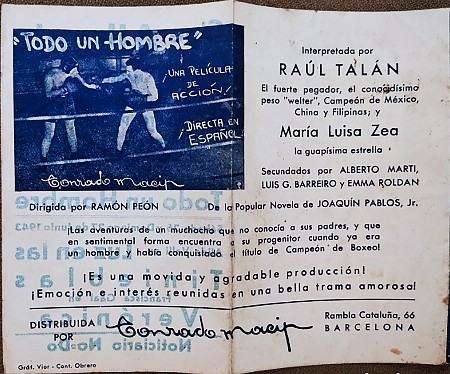 "TODO UN HOMBRE"
¡UNA PELÍCULA
DE
ACCIÓN!
¡DIRECTA EN
ESPAÑOL!
Conrado Macip
Interpretada por
RAÚL TALÁN
El fuerte pegador, el conocidísimo
peso "welter", Campeón de México,
China y Filipinas; y
María Luisa Zea
la guapísima estrella
Secundados por ALBERTO MARTI,
LUIS G. BARREIRO y EMMA ROLDAN
Dirigida por RAMÓN PEÓN
De la Popular Novela de JOAQUÍN PABLOS, Jr.
¡Las aventuras de un muchacho que no conocía a sus padres, y que
en sentimental forma encuentra a su progenitor cuando ya era
un hombre y había conquistado el título de Campeón de Boxeo!
¡Es una movida y agradable producción!
¡Emoción e interés reunidas en una bella trama amorosa!
DISTRIBUIDA
POR
Conrado Macip
Rambla Cataluña, 66
BARCELONA
Gráf. Vior - Cont. Obrero
Todo un Hombre
Verónica
Noticiario No-Do